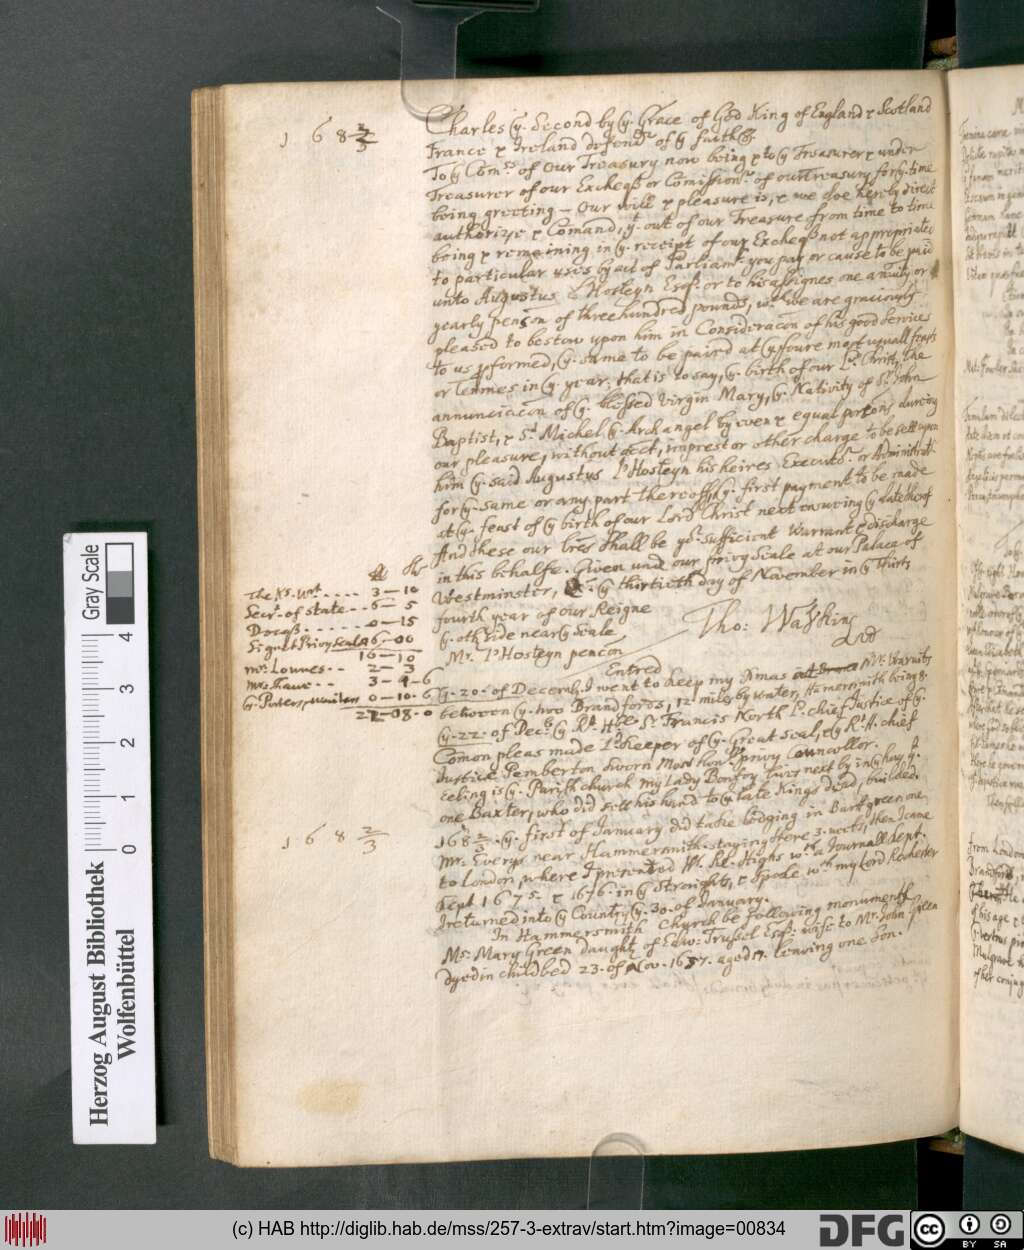 1682/3
Charles ye. Second by ye. Grace of God King of England & Scotland
France & Ireland defendr. of ye faith &c
To ye Comrs. of Our Treasury now being & to ye Treasurer & under
Treasurer of our Excheqr or Comissionrs. of our Treasury for ye. time
being greeting — Our will & pleasure is, & we doe hereby direct
authorize & Comand, yt. out of our Treasure from time to time
being & remaining in ye. receipt of our Excheqr not appropriated
to particular uses by act of Parliamt. you pay or cause to be paid
unto Augustus L'Hosteyn Esqr. or to his assignes one anuity or
yearly pension of three hundred pounds, wch. we are graciously
pleased to bestow upon him in Consideracon of his good services
to us pformed, ye. same to be paird at ye foure most usuall feasts
or Termes in ye. year, that is to say, ye. birth of our Ld. Christ, the
annunciacon of ye. blessed Virgin Mary, ye. Nativity of St. John
Baptist, & St. Michel ye. Archangel by even & equal portions during
our pleasure, without acct, imprest or other charge to be sett upon
him ye. said Augustus L'Hosteyn his heires Executrs. or Administrat.
for ye. same or any part thereoff, ye. first payment to be made
at ye. feast of ye birth of our Lord Christ next ensueing ye date therof
And these our lres shall be yor. sufficient Warrant & discharge
in this behalfe. Given undr our privy Seale at our Palace of
Westminster, ye. thirtieth day of November in ye Thirty
fourth year of our Reigne
ye. oth side near ye Seale
Mr. L'Hosteyn pencon
Tho: Watkins
Entred
li shs
The Ks. Wrt. .... 3 — 10
Secry. of State .. 6 — 5
Docqt. ...... 0 — 15
Signet Privy Seale 6 — 00
16 — 10
mr. Lownes .. 2 — 3
.. 3 — 4 — 6
0 — 10 . 6
22 — 08 . 0
ye. 20. of Decemb. I went to keep my Xmas at Mr. Vanuity
betveen ye. two Brandfords, 12 miles by water, Hamersmith being 8.
ye. 22. of Decb. ye Rt. Hble. Sr. Francis North Ld. chief Justice of ye.
Comon pleas made Ld. Keeper of ye. Great Seal, & ye Rt. H. chief
Justice Pemberton sworn Most Honble. Privy Councellor.
Eeling is ye. Parish church my Lady Bonfoy lives next by in ye hay yt.
one Baxter, who did sett his hand to ye late Kings dead, builded.
1682/3
1682/3. ye. first of January did take lodging in Bartgreen one
Mr. Everys near Hammersmith staying there 3. weeks, then I came
to London, where I presented H. Rl. Highs wth. a Journall dept.
kept 1675. & 1676. in ye Streights, & spoke wth my Lord Rochester
I returned into ye Country ye. 30. of January.
In Hammersmith Church be following monument
Ms. Mary Green daught. of Edw: Trussel Esqr: wife to Mr. John Green
dyed in childbed 23. of Nov. 1657. leaving one son.
Herzog August Bibliothek
Wolfenbüttel
Gray Scale
0 1 2 3 4
(c) HAB http://diglib.hab.de/mss/257-3-extrav/start.htm?image=00834
DFG
cc BY SA